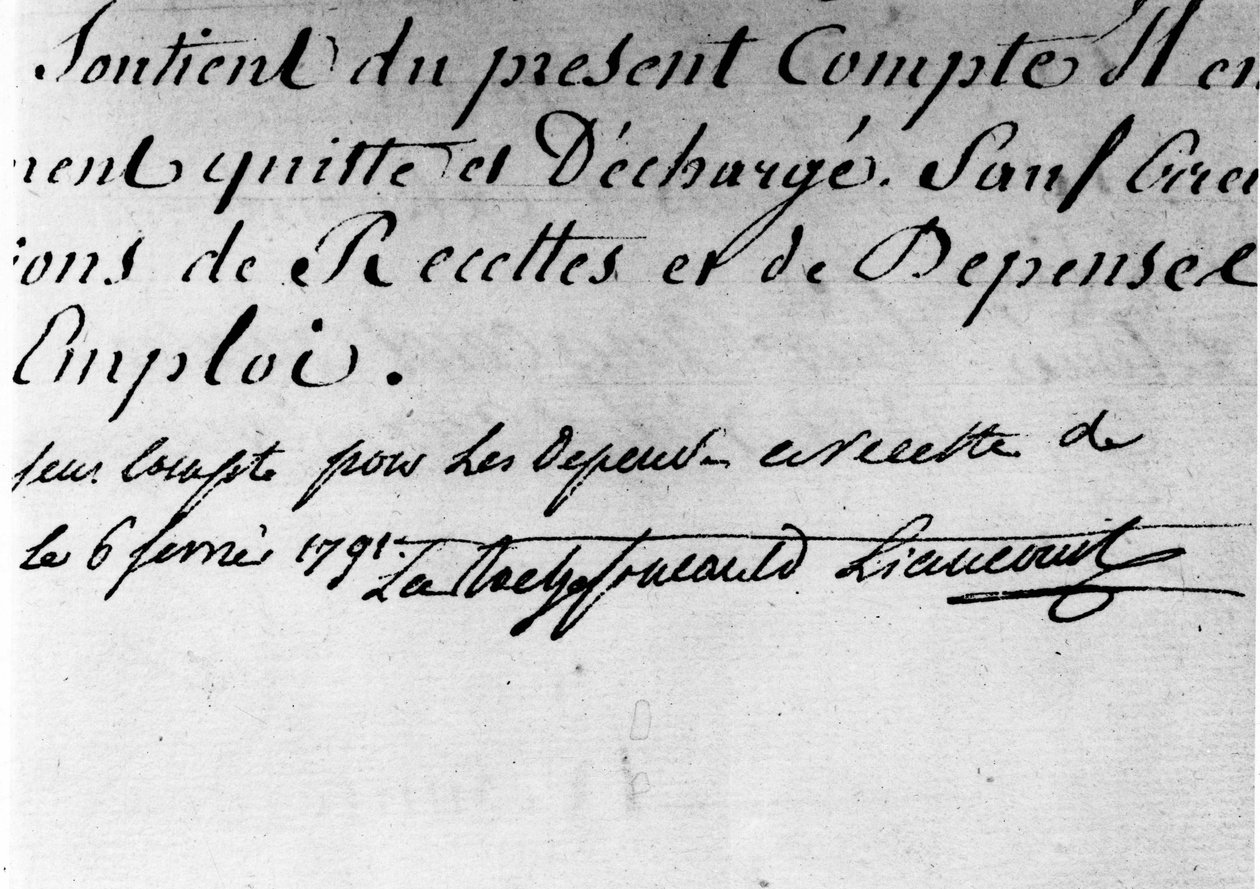 Soutient du present Compte Il en
ment quitte et Déchargé. Sauf Erreu
ions de Recettes et de Depenses
Emploi.
compte pour les depense et recette de
le 6 fevrié 1791. La Rochefoucauld Liancourt